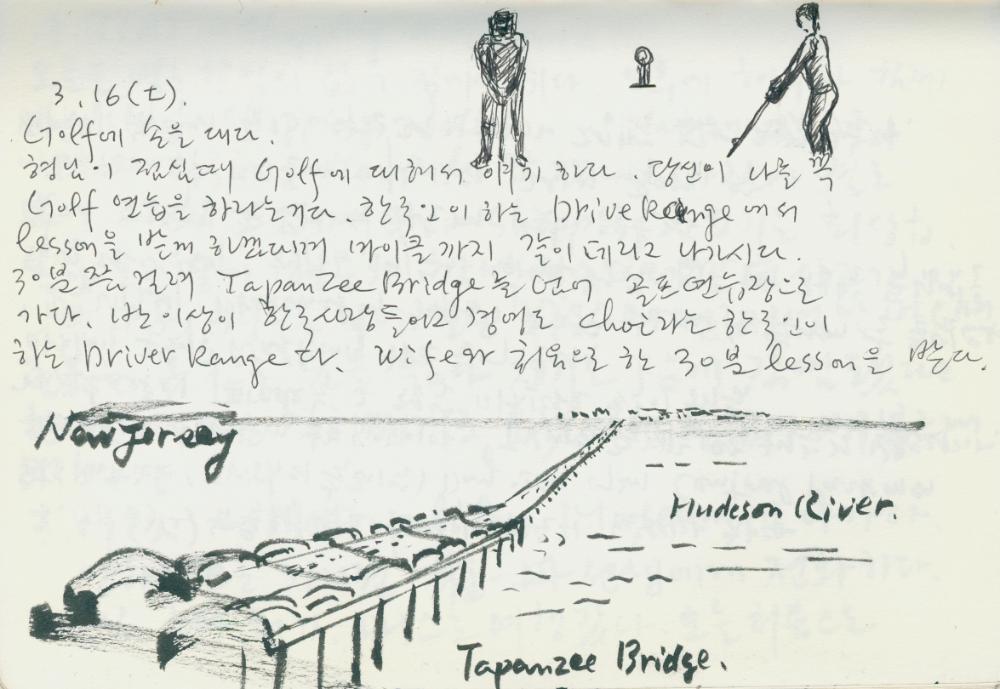 3.16(토).
Golf에 손을 대다.
형님이 점심때 Golf에 대해서 얘기하다. 당신이 나를 꼭
Golf 연습을 하라는거다. 한국인이 하는 Drive Range에서
lesson을 받게 하겠다며 마이클까지 같이 데리고 나가시다.
30분쯤 걸려 TapanZee Bridge를 넘어 골프연습장으로
가다. 반이상이 한국사람들이고 경영도 choi라는 한국인이
하는 Driver Range다. wife와 처음으로 한 30분 lesson을 받다.
New Jersey
Hudeson River.
Tapanzee Bridge.